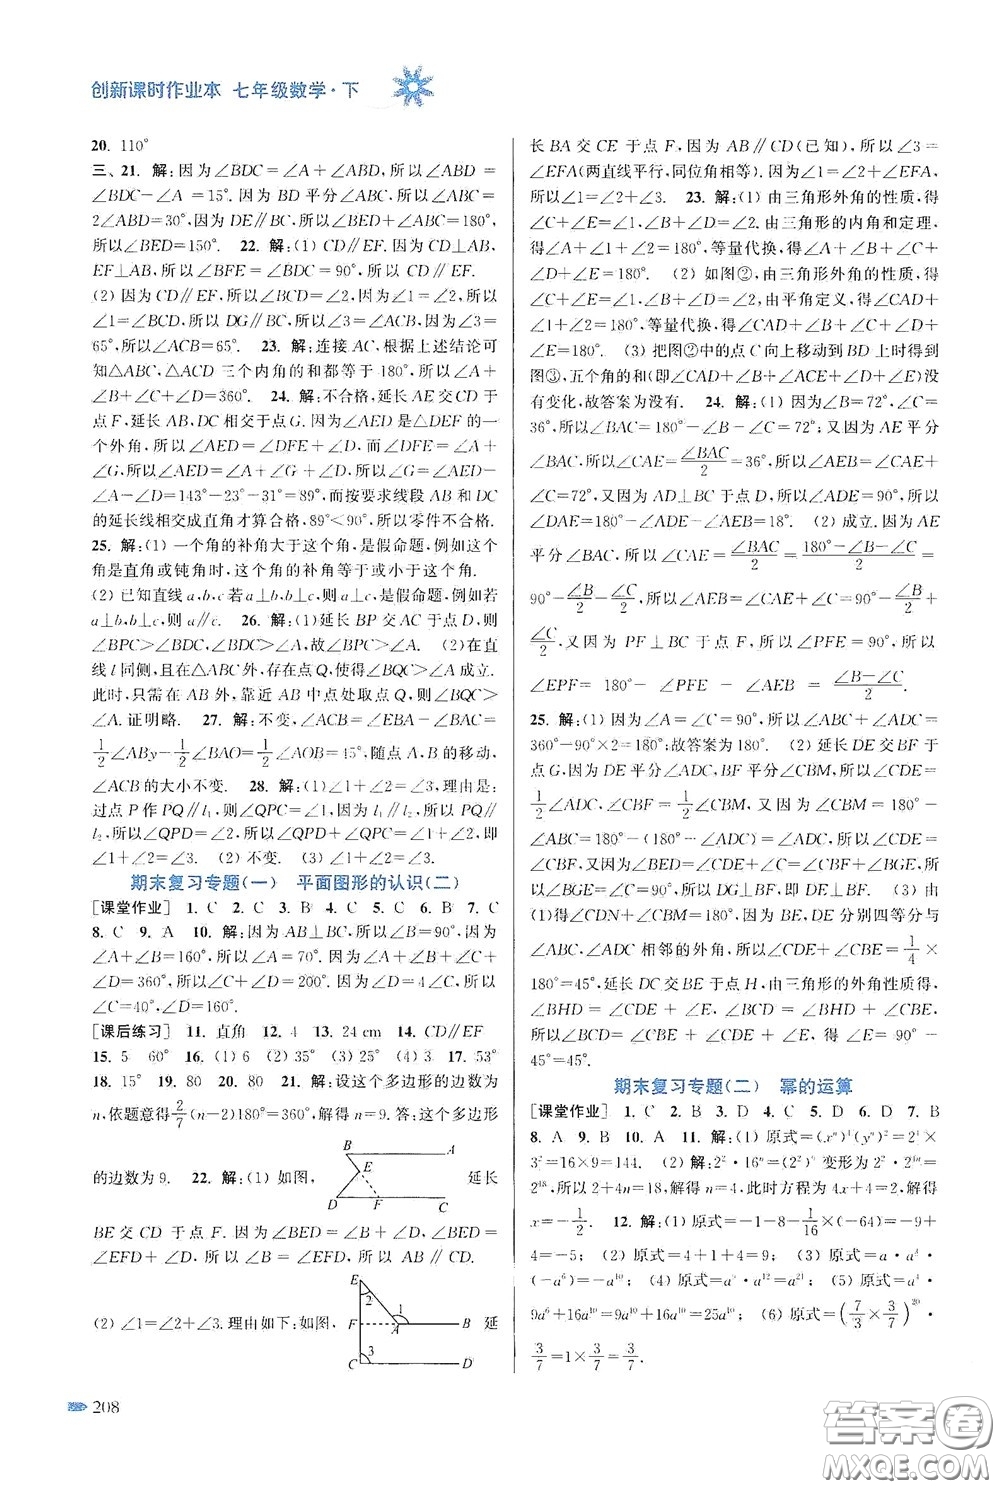 创新课时作业本 七年级数学·下
20. 110°
三、21. 解:因为∠BDC=∠A+∠ABD,所以∠ABD=
∠BDC-∠A=15°. 因为BD平分∠ABC,所以∠ABC=
2∠ABD=30°,因为DE∥BC,所以∠BED+∠ABC=180°,
所以∠BED=150°. 22. 解:(1) CD∥EF. 因为CD⊥AB,
EF⊥AB,所以∠BFE=∠BDC=90°,所以CD∥EF.
(2) 因为CD∥EF,所以∠BCD=∠2,因为∠1=∠2,所以
∠1=∠BCD,所以DG∥BC,所以∠3=∠ACB,因为∠3=
65°,所以∠ACB=65°. 23. 解:连接AC,根据上述结论可
知△ABC,△ACD三个内角的和都等于180°,所以∠A+
∠B+∠C+∠D=360°. 24. 解:不合格,延长AE交CD于
点F,延长AB,DC相交于点G.因为∠AED是△DEF的一
个外角,所以∠AED=∠DFE+∠D,而∠DFE=∠A+
∠G,所以∠AED=∠A+∠G+∠D,所以∠G=∠AED-
∠A-∠D=143°-23°-31°=89°,而按要求线段AB和DC
的延长线相交成直角才算合格,89°<90°,所以零件不合格.
25. 解:(1) 一个角的补角大于这个角,是假命题,例如这个角
是直角或钝角时,这个角的补角等于或小于这个角.
(2) 已知直线a,b,c若a⊥b,b⊥c,则a⊥c,是假命题,例如若
a⊥b,b⊥c,则a∥c. 26. 解:(1)延长BP交AC于点D,则
∠BPC>∠BDC,∠BDC>∠A,故∠BPC>∠A. (2)在直
线l同侧,且在△ABC外,存在点Q,使得∠BQC>∠A成立.
此时,只需在AB外,靠近AB中点处取点Q,则∠BQC>
∠A.证明略. 27. 解:不变,∠ACB=∠EBA-∠BAC=
1/2∠ABy-1/2∠BAO=1/2∠AOB=45°,随点A、B的移动,
∠ACB的大小不变. 28. 解:(1)∠1+∠2=∠3,理由是:
过点P作PQ∥l₁,则∠QPC=∠1,因为l₁∥l₂,所以PQ∥
l₂,所以∠QPD=∠2,所以∠QPD+∠QPC=∠1+∠2,即
∠1+∠2=∠3. (2) 不变. (3) ∠1+∠2=∠3.
期末复习专题(一) 平面图形的认识(二)
[课堂作业] 1. C 2. C 3. B 4. C 5. C 6. B 7. C
8. C 9. A 10. 解:因为AB⊥BC,所以∠B=90°,因为
∠A+∠B=160°,所以∠A=70°. 因为∠A+∠B+∠C+
∠D=360°,所以∠C+∠D=200°. 因为∠D=4∠C,所以
∠C=40°,∠D=160°.
[课后练习] 11. 直角 12. 4 13. 24 cm 14. CD∥EF
15. 5 60° 16. (1) 6 (2) 35° (3) 4 17. 53°
18. 15° 19. 80 20. 80 21. 解:设这个多边形的边数为
n,依题意得2/7(n-2)180°=360°,解得n=9.答:这个多边形
的边数为9. 22. 解:(1) 如图, 延长
B A E D F C
BE交CD于点F. 因为∠BED=∠B+∠D,∠BED=
∠EFD+∠D,所以∠B=∠EFD,所以AB∥CD.
(2) ∠1=∠2+∠3.理由如下:如图, 延
E 2 1 F A B 3 C D
长BA交CE于点F,因为AB∥CD(已知),所以∠3=
∠EFA(两直线平行,同位角相等).因为∠1=∠2+∠EFA,
所以∠1=∠2+∠3. 23. 解:(1) 由三角形外角的性质,得
∠C+∠E=∠1,∠B+∠D=∠2,由三角形的内角和定理,
得∠A+∠1+∠2=180°,等量代换,得∠A+∠B+∠C+
∠D+∠E=180°. (2) 如图②,由三角形外角的性质,得
∠C+∠E=∠1,∠B+∠D=∠2,由平角定义,得∠CAD+
∠1+∠2=180°,等量代换,得∠CAD+∠B+∠C+∠D+
∠E=180°. (3) 把图②中的点C向上移动到BD上时得到
图③,五个角的和(即∠CAD+∠B+∠C+∠D+∠E)没
有变化,故答案为没有. 24. 解:(1) 因为∠B=72°,∠C=
36°,所以∠BAC=180°-∠B-∠C=72°;又因为AE平分
∠BAC,所以∠CAE=∠BAC/2=36°,所以∠AEB=∠CAE+
∠C=72°,又因为AD⊥BC于点D,所以∠ADE=90°,所以
∠DAE=180°-∠ADE-∠AEB=18°. (2) 成立.因为AE
平分∠BAC,所以∠CAE=∠BAC/2=(180°-∠B-∠C)/2=
90°-∠B/2-∠C/2,所以∠AEB=∠CAE+∠C=90°-∠B/2+
∠C/2,又因为PF⊥BC于点F,所以∠PFE=90°,所以
∠EPF=180°-∠PFE-∠AEB=(∠B-∠C)/2.
25. 解:(1) 因为∠A=∠C=90°,所以∠ABC+∠ADC=
360°-90°×2=180°;故答案为180°. (2) 延长DE交BF于
点G,因为DE平分∠ADC,BF平分∠CBM,所以∠CDE=
1/2∠ADC,∠CBF=1/2∠CBM,又因为∠CBM=180°-
∠ABC=180°-(180°-∠ADC)=∠ADC,所以∠CDE=
∠CBF,又因为∠BED=∠CDE+∠C=∠CBF+∠BGE,所
以∠BGE=∠C=90°,所以DG⊥BF,即DE⊥BF. (3) 由
(1)得∠CDN+∠CBM=180°,因为BE,DE分别四等分与
∠ABC,∠ADC相邻的外角,所以∠CDE+∠CBE=1/4×
180°=45°,延长DC交BE于点H,由三角形的外角性质得,
∠BHD=∠CDE+∠E,∠BCD=∠BHD+∠CBE,
所以∠BCD=∠CBE+∠CDE+∠E,所以∠E=90°-
45°=45°.
期末复习专题(二) 幂的运算
[课堂作业] 1. C 2. B 3. D 4. C 5. D 6. D 7. B
8. A 9. B 10. A 11. 解:(1) 原式=(xⁿ)⁴(yⁿ)²=2⁴×
3²=16×9=144. (2) 解:2²·16ⁿ=(2²)⁹变形为2²·2⁴ⁿ=
2¹⁸,所以2+4n=18,解得n=4,此时方程为4x+4=2,解得
x=-1/2. 12. 解:(1) 原式=-1-8-1/16×(-64)=-9
+4=-5; (2) 原式=4+1+4=9; (3) 原式=a·a⁴·
(-a⁶)=-a¹⁰; (4) 原式=a⁹·a¹²=a²¹; (5) 原式=
9a⁶+16a¹⁰=9a¹⁰+16a¹⁰=25a¹⁰; (6) 原式=(7/3×3/7)²⁰·
3/7=1×3/7=3/7.
208
答案卷
MXQE.COM